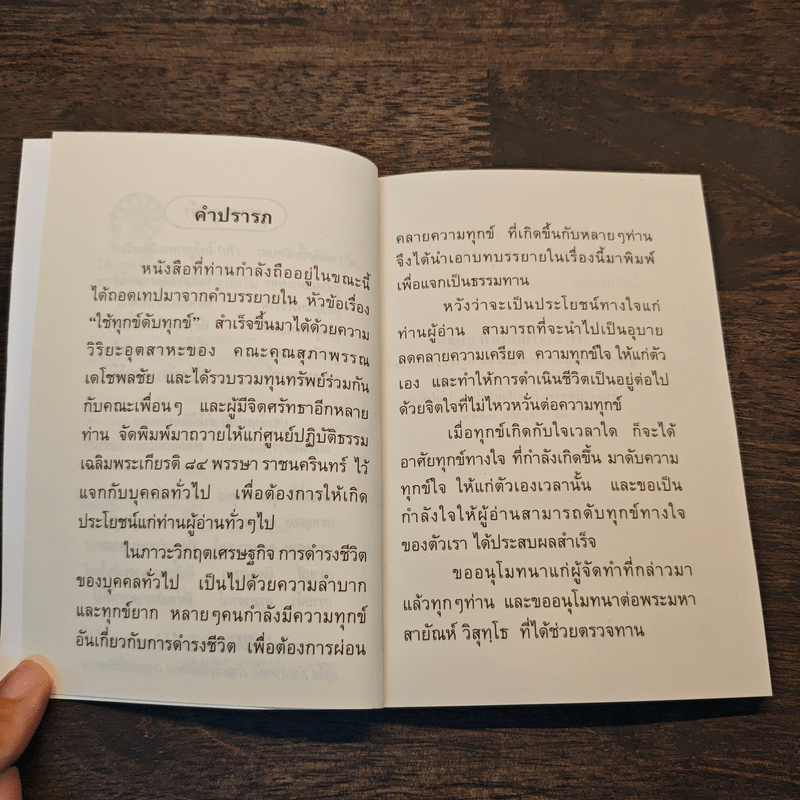 คำปรารภ
หนังสือที่ท่านกำลังถืออยู่ในขณะนี้
ได้ถอดเทปมาจากคำบรรยายใน หัวข้อเรื่อง
“ใช้ทุกข์ดับทุกข์” สำเร็จขึ้นมาได้ด้วยความ
วิริยะอุตสาหะของ คณะคุณสุภาพรรณ
เดโชพลชัย และได้รวบรวมทุนทรัพย์ร่วมกัน
กับคณะเพื่อนๆ และผู้มีจิตศรัทธาอีกหลาย
ท่าน จัดพิมพ์มาถวายให้แก่ศูนย์ปฏิบัติธรรม
เฉลิมพระเกียรติ ๘๔ พรรษา ราชนครินทร์ ไว้
แจกกับบุคคลทั่วไป เพื่อต้องการให้เกิด
ประโยชน์แก่ท่านผู้อ่านทั่วๆไป
ในภาวะวิกฤตเศรษฐกิจ การดำรงชีวิต
ของบุคคลทั่วไป เป็นไปด้วยความลำบาก
และทุกข์ยาก หลายๆคนกำลังมีความทุกข์
อันเกี่ยวกับการดำรงชีวิต เพื่อต้องการผ่อน
คลายความทุกข์ ที่เกิดขึ้นกับหลายๆท่าน
จึงได้นำเอาบทบรรยายในเรื่องนี้มาพิมพ์
เพื่อแจกเป็นธรรมทาน
หวังว่าจะเป็นประโยชน์ทางใจแก่
ท่านผู้อ่าน สามารถที่จะนำไปเป็นอุบาย
ลดคลายความเครียด ความทุกข์ใจ ให้แก่ตัว
เอง และทำให้การดำเนินชีวิตเป็นอยู่ต่อไป
ด้วยจิตใจที่ไม่ไหวหวั่นต่อความทุกข์
เมื่อทุกข์เกิดกับใจเวลาใด ก็จะได้
อาศัยทุกข์ทางใจ ที่กำลังเกิดขึ้น มาดับความ
ทุกข์ใจ ให้แก่ตัวเองเวลานั้น และขอเป็น
กำลังใจให้ผู้อ่านสามารถดับทุกข์ทางใจ
ของตัวเรา ได้ประสบผลสำเร็จ
ขออนุโมทนาแก่ผู้จัดทำที่กล่าวมา
แล้วทุกๆท่าน และขออนุโมทนาต่อพระมหา
สายัณห์ วิสุทฺโธ ที่ได้ช่วยตรวจทาน